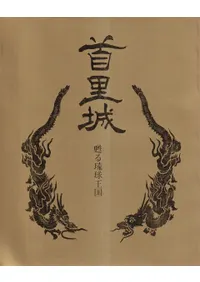 首里城
甦る琉球王国